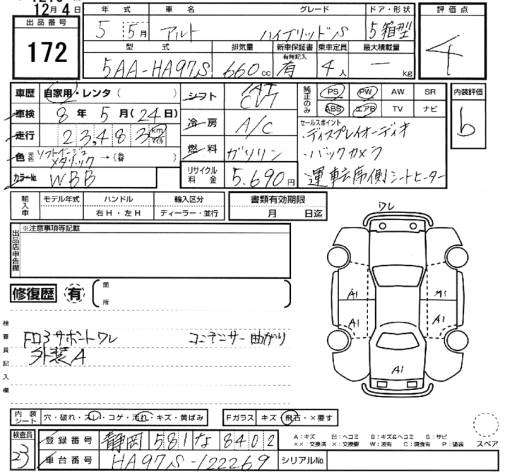 12月4日
出品番号
172
年式 車名 グレード ドア・形状 評価点
5 5月 アルト ハイブリッドS 5箱型 4
型式 排気量 新車保証書 乗車定員 最大積載量
有無記入
5AA-HA97S 660cc 有 4人 — kg
車歴 自家用・レンタ( ) シフト CVT 純正のみ PS PW AW SR 内装評価
車検 8年5月(24日) ABS エアB TV ナビ b
走行 23,483 km 冷房 A/C セールスポイント
・ディスプレイオーディオ
色 ソフトベージュメタリック →(替 ) 燃料 ガソリン ・バックカメラ
カラーNo. WBB リサイクル料金 5,690円 ・運転席側シートヒーター
輸入車 モデル年式 ハンドル 輸入区分 書類有効期限
右H・左H ディーラー・並行 月 日迄
出品店申告欄 ※注意事項等記載
修復歴 有 箇所
検査員記入欄
F ロ3サポートワレ コンデンサー曲がり
外装A
ワレ
A1 A1
A1 A1
A1
内装シート 穴・破れ・スレ・コゲ・汚れ・キズ・黄ばみ Fガラス キズ・飛石・×要す
検査員 23
登録番号 静岡 581 な 8402
車台番号 HA97S-122269 シリアルNo.
A:キズ
スペア